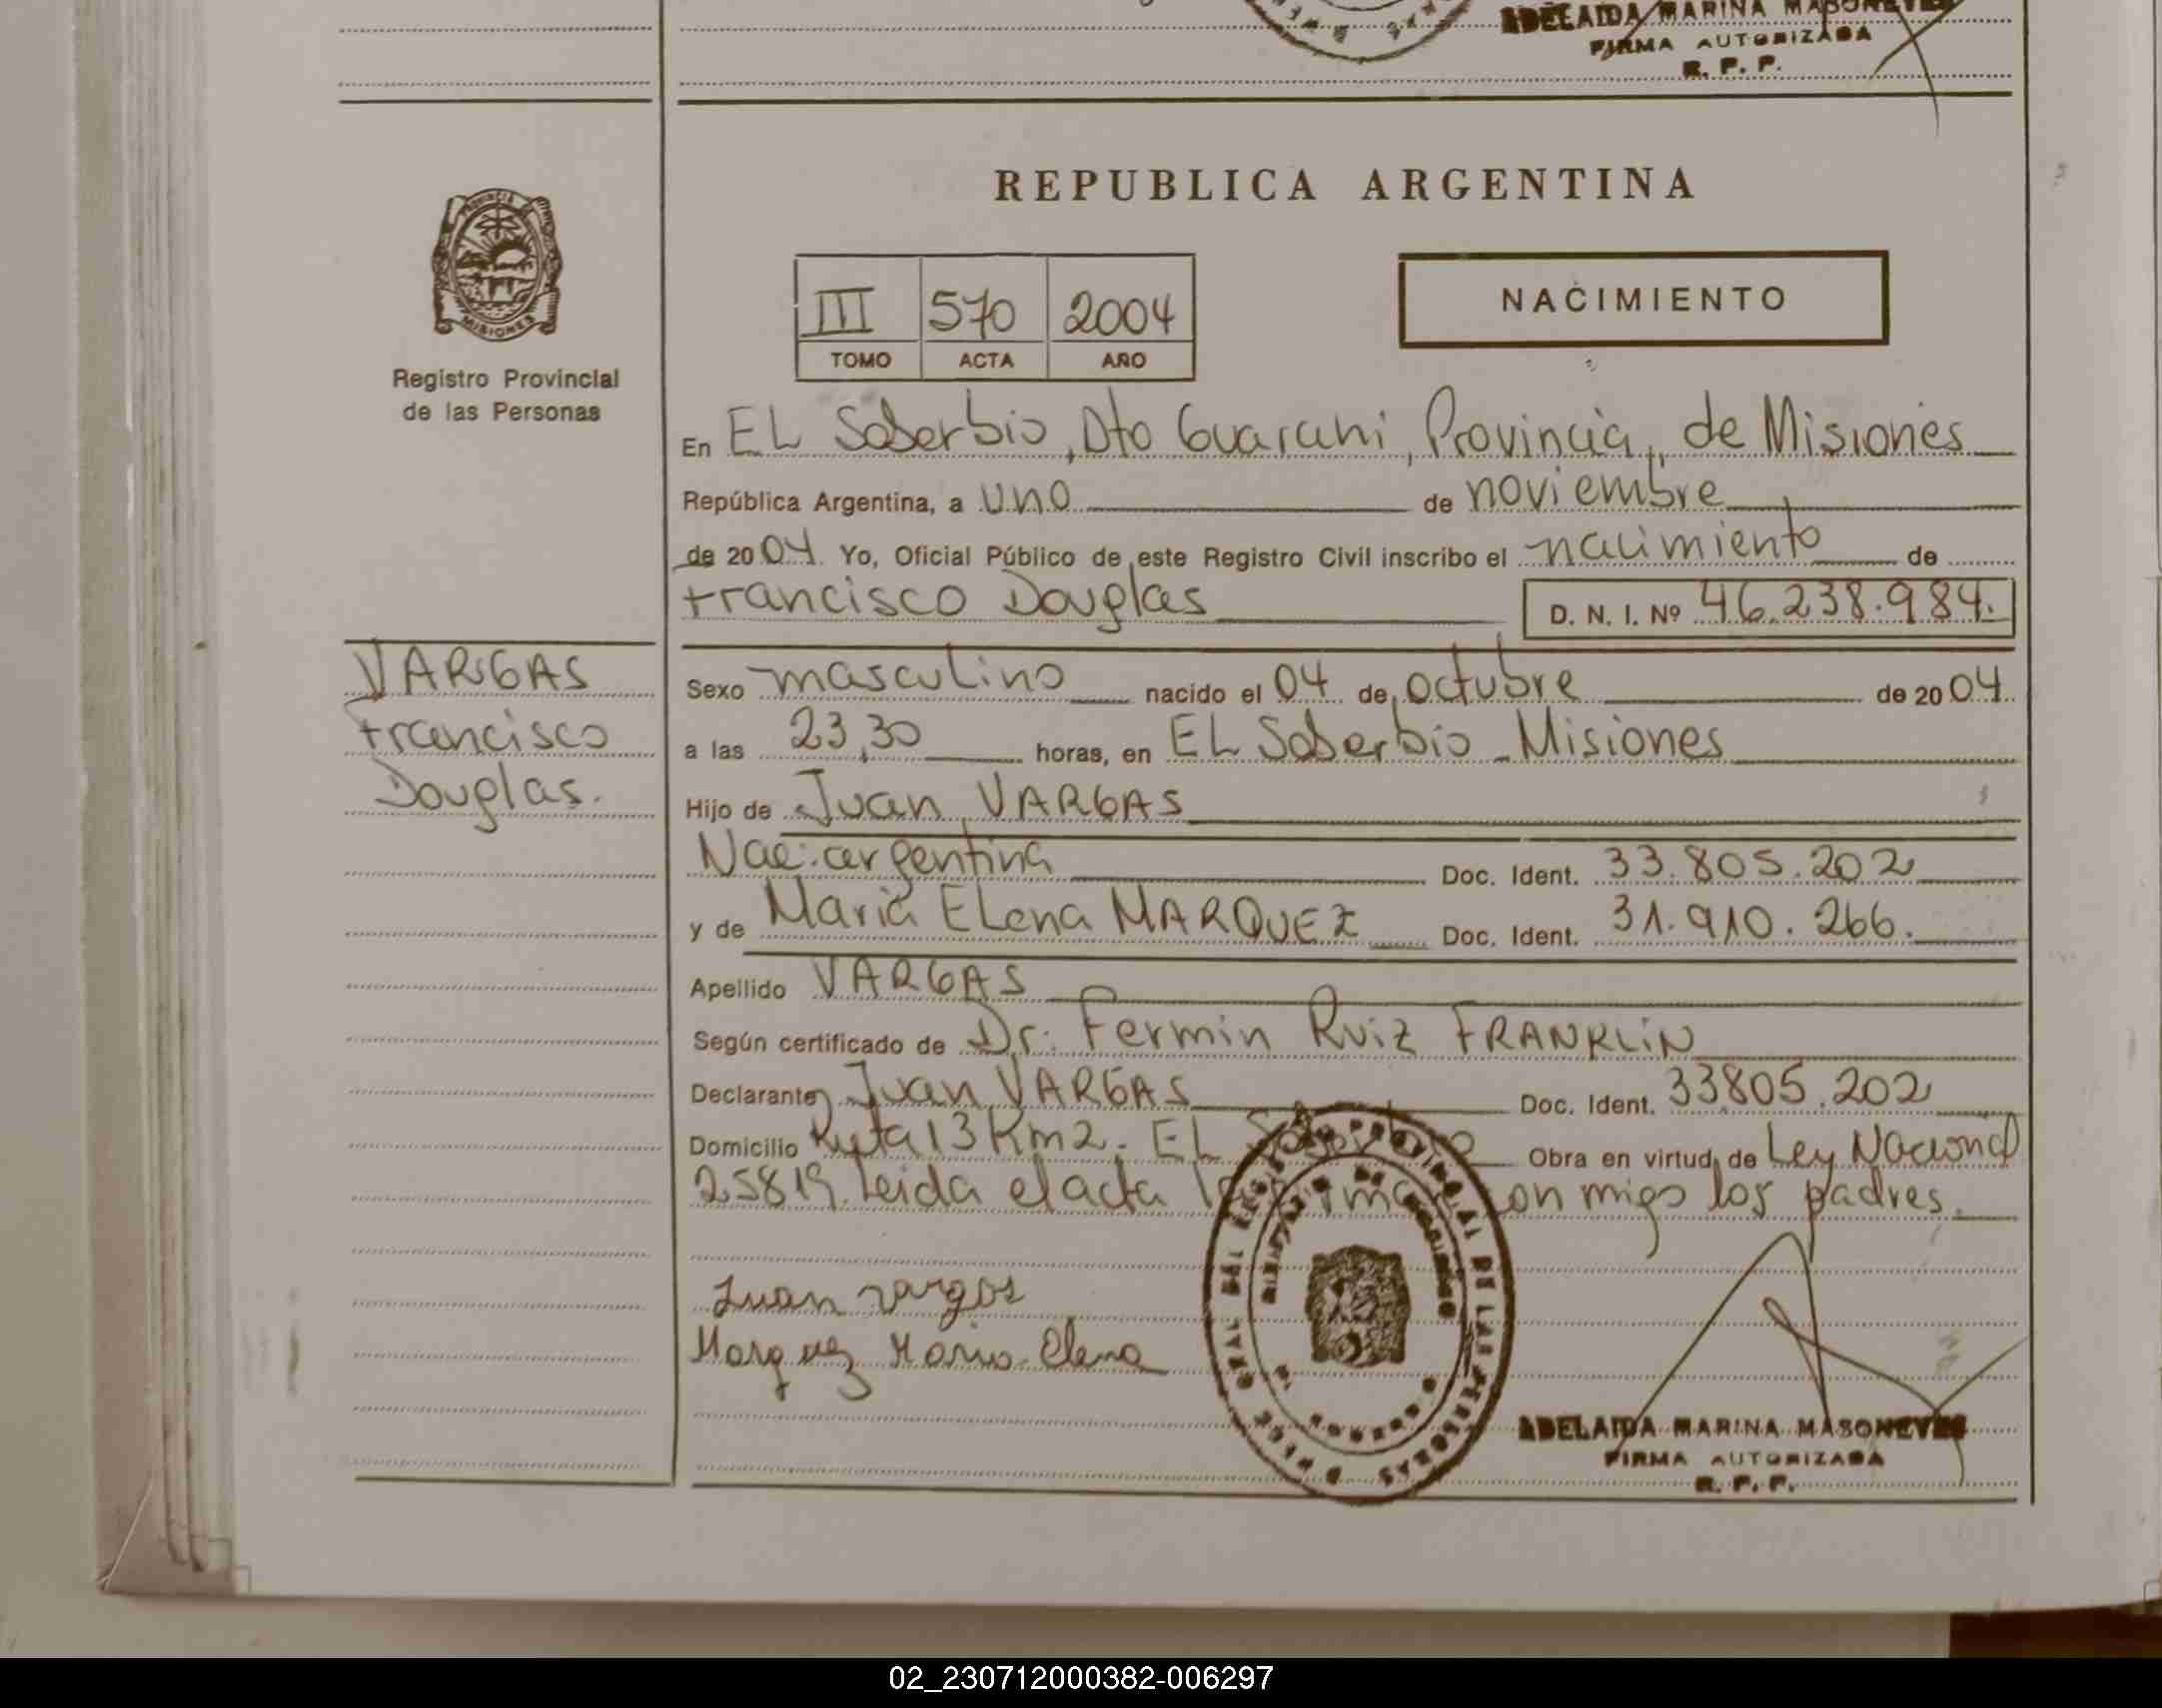 ADELAIDA MARINA MASONEVES
FIRMA AUTORIZADA
R. P. P.
REPUBLICA ARGENTINA
PROVINCIA DE
MISIONES
Registro Provincial
de las Personas
III 570 2004
TOMO ACTA AÑO
NACIMIENTO
En EL Soberbio, Dto Guarani, Provincia, de Misiones
República Argentina, a uno de noviembre
de 2004 Yo, Oficial Público de este Registro Civil inscribo el nacimiento de
Francisco Douglas D. N. I. Nº 46.238.984.
VARGAS
Francisco
Douglas.
Sexo masculino nacido el 04 de octubre de 2004
a las 23,30 horas, en EL Soberbio - Misiones
Hijo de Juan VARGAS
Nac: argentina Doc. Ident. 33.805.202
y de Maria ELena MARQUEZ Doc. Ident. 31.910.266.
Apellido VARGAS
Según certificado de Dr. Fermin Ruiz FRANKLiN
Declarante Juan VARGAS Doc. Ident. 33805.202
Domicilio Ruta 13 Km2. EL Soberbio Obra en virtud de Ley Nacional
25819. Leida el acta la firman con migo los padres.
Juan vargas
Marquez Maria Elena
PROVINCIAL DE LAS PERSONAS
ADELAIDA MARINA MASONEVES
FIRMA AUTORIZADA
R. P. P.
02_230712000382-006297